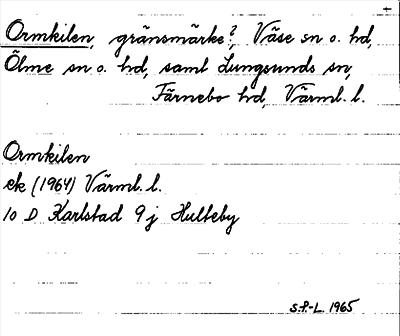 +
Ormkilen, gränsmärke?, Väse sn o. hd,
Ölme sn o. hd, samt Lungsunds sn,
Färnebo hd, Värml. l.
Ormkilen
ek (1964) Värml. l.
10 D Karlstad 9 j Hulteby
S.P.-L. 1965